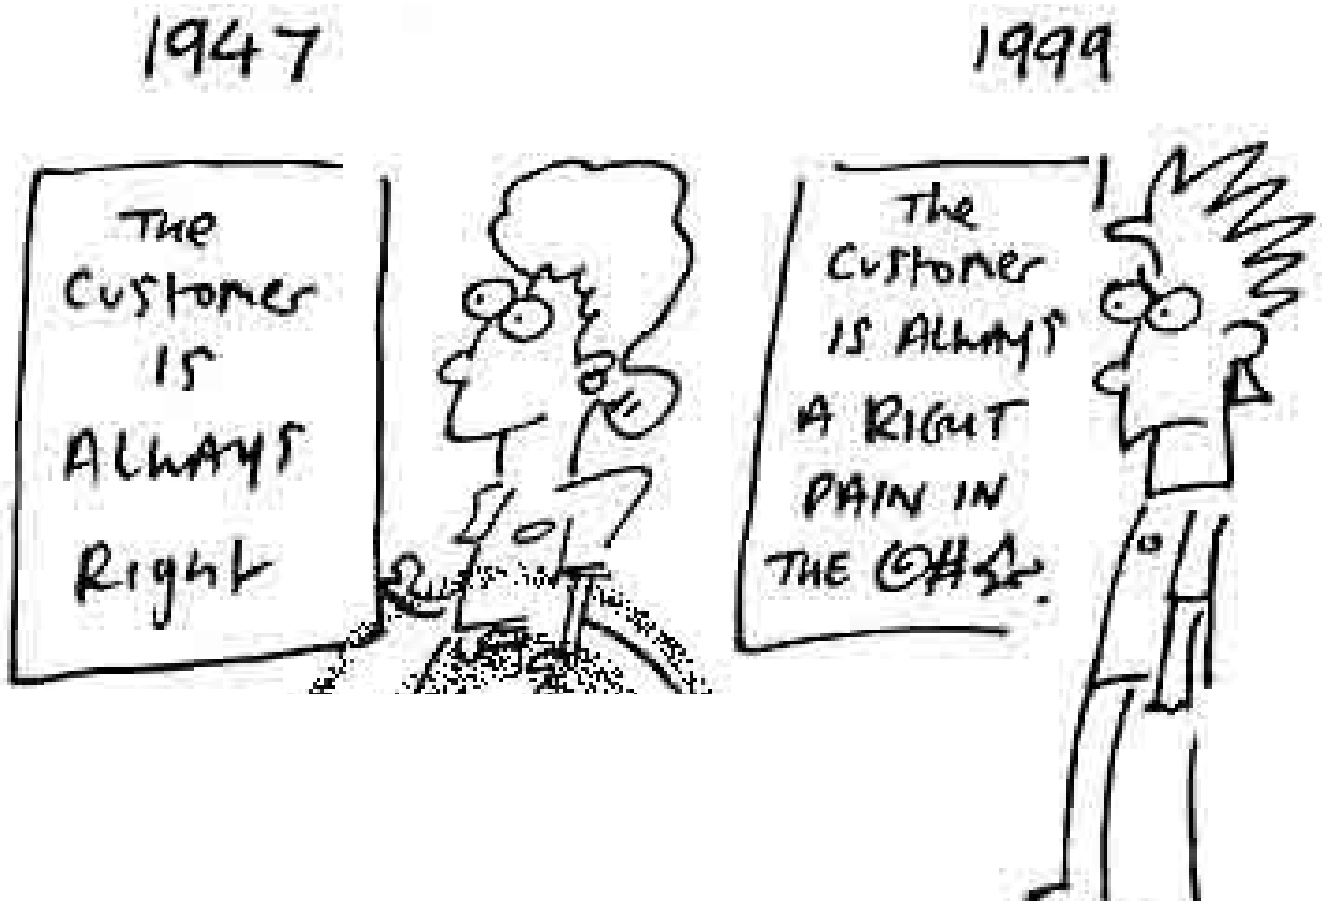 1947
The
Customer
is
ALWAYS
Right
1999
The
Customer
is ALWAYS
A RIGHT
PAIN IN
THE @#&.